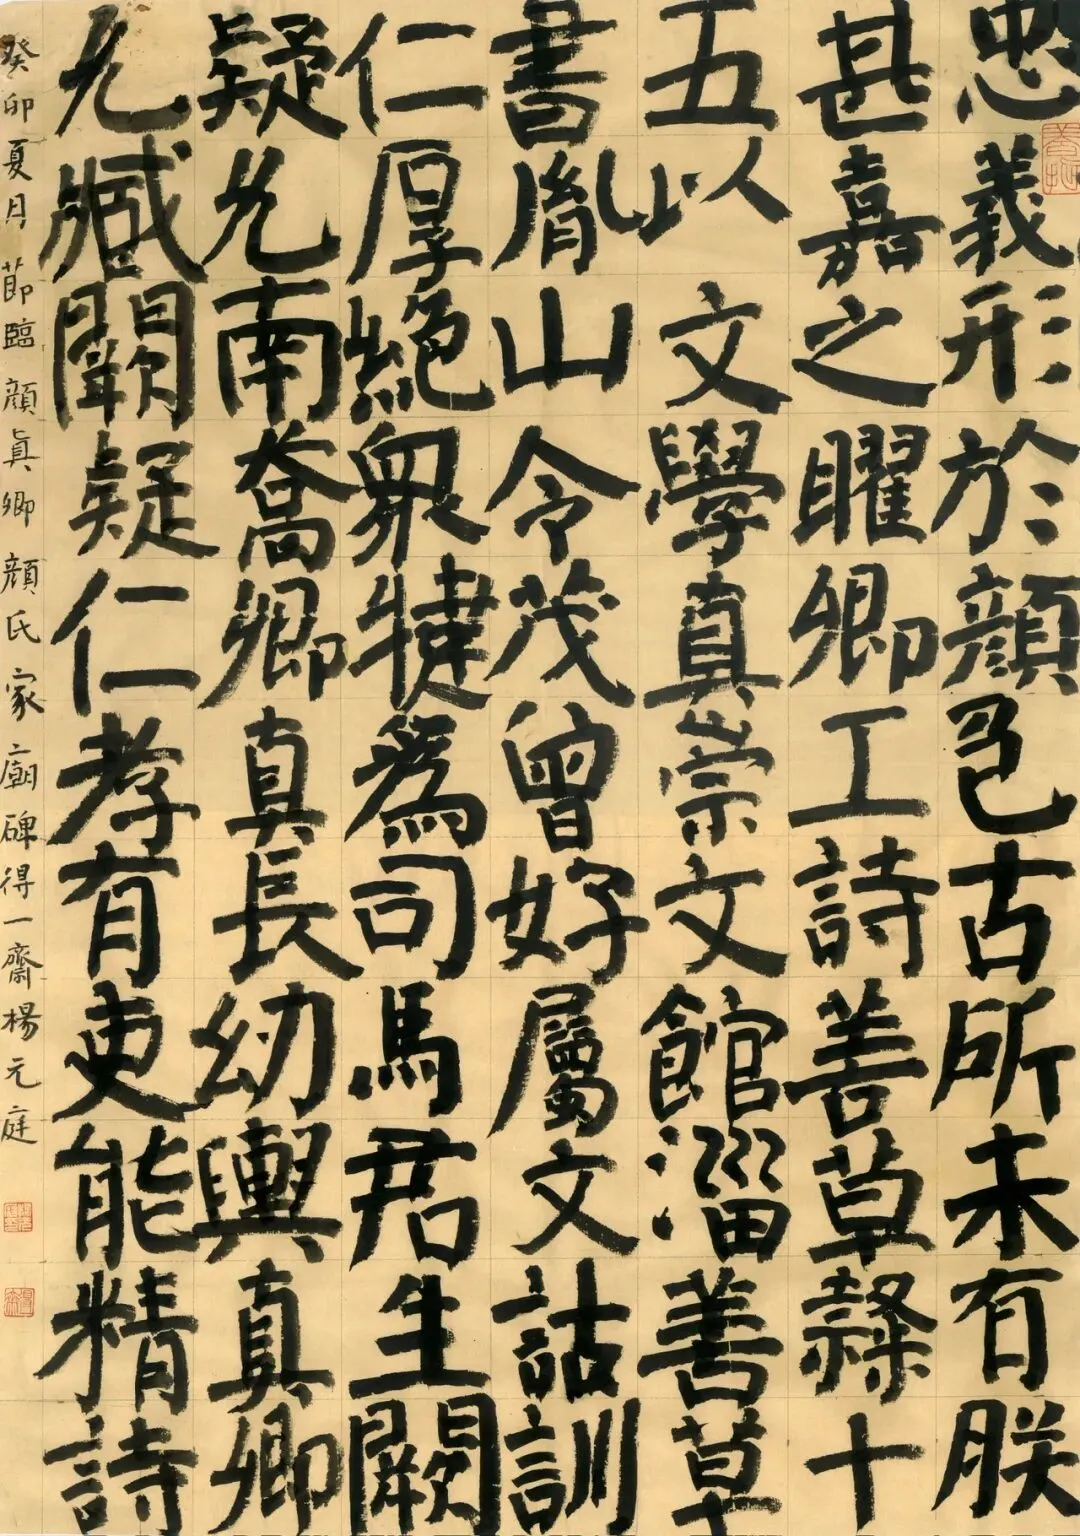 忠義形於顏色古所未有朕
甚嘉之曜卿工詩善草隸十
五以文學真崇文館淄善草
書胤山令茂曾好屬文詁訓
仁厚絕眾犍為司馬君生闕
疑允南喬卿真長幼輿真卿
允臧闕疑仁孝有吏能精詩
癸卯夏月節臨顏真卿顏氏家廟碑得一齋楊元庭